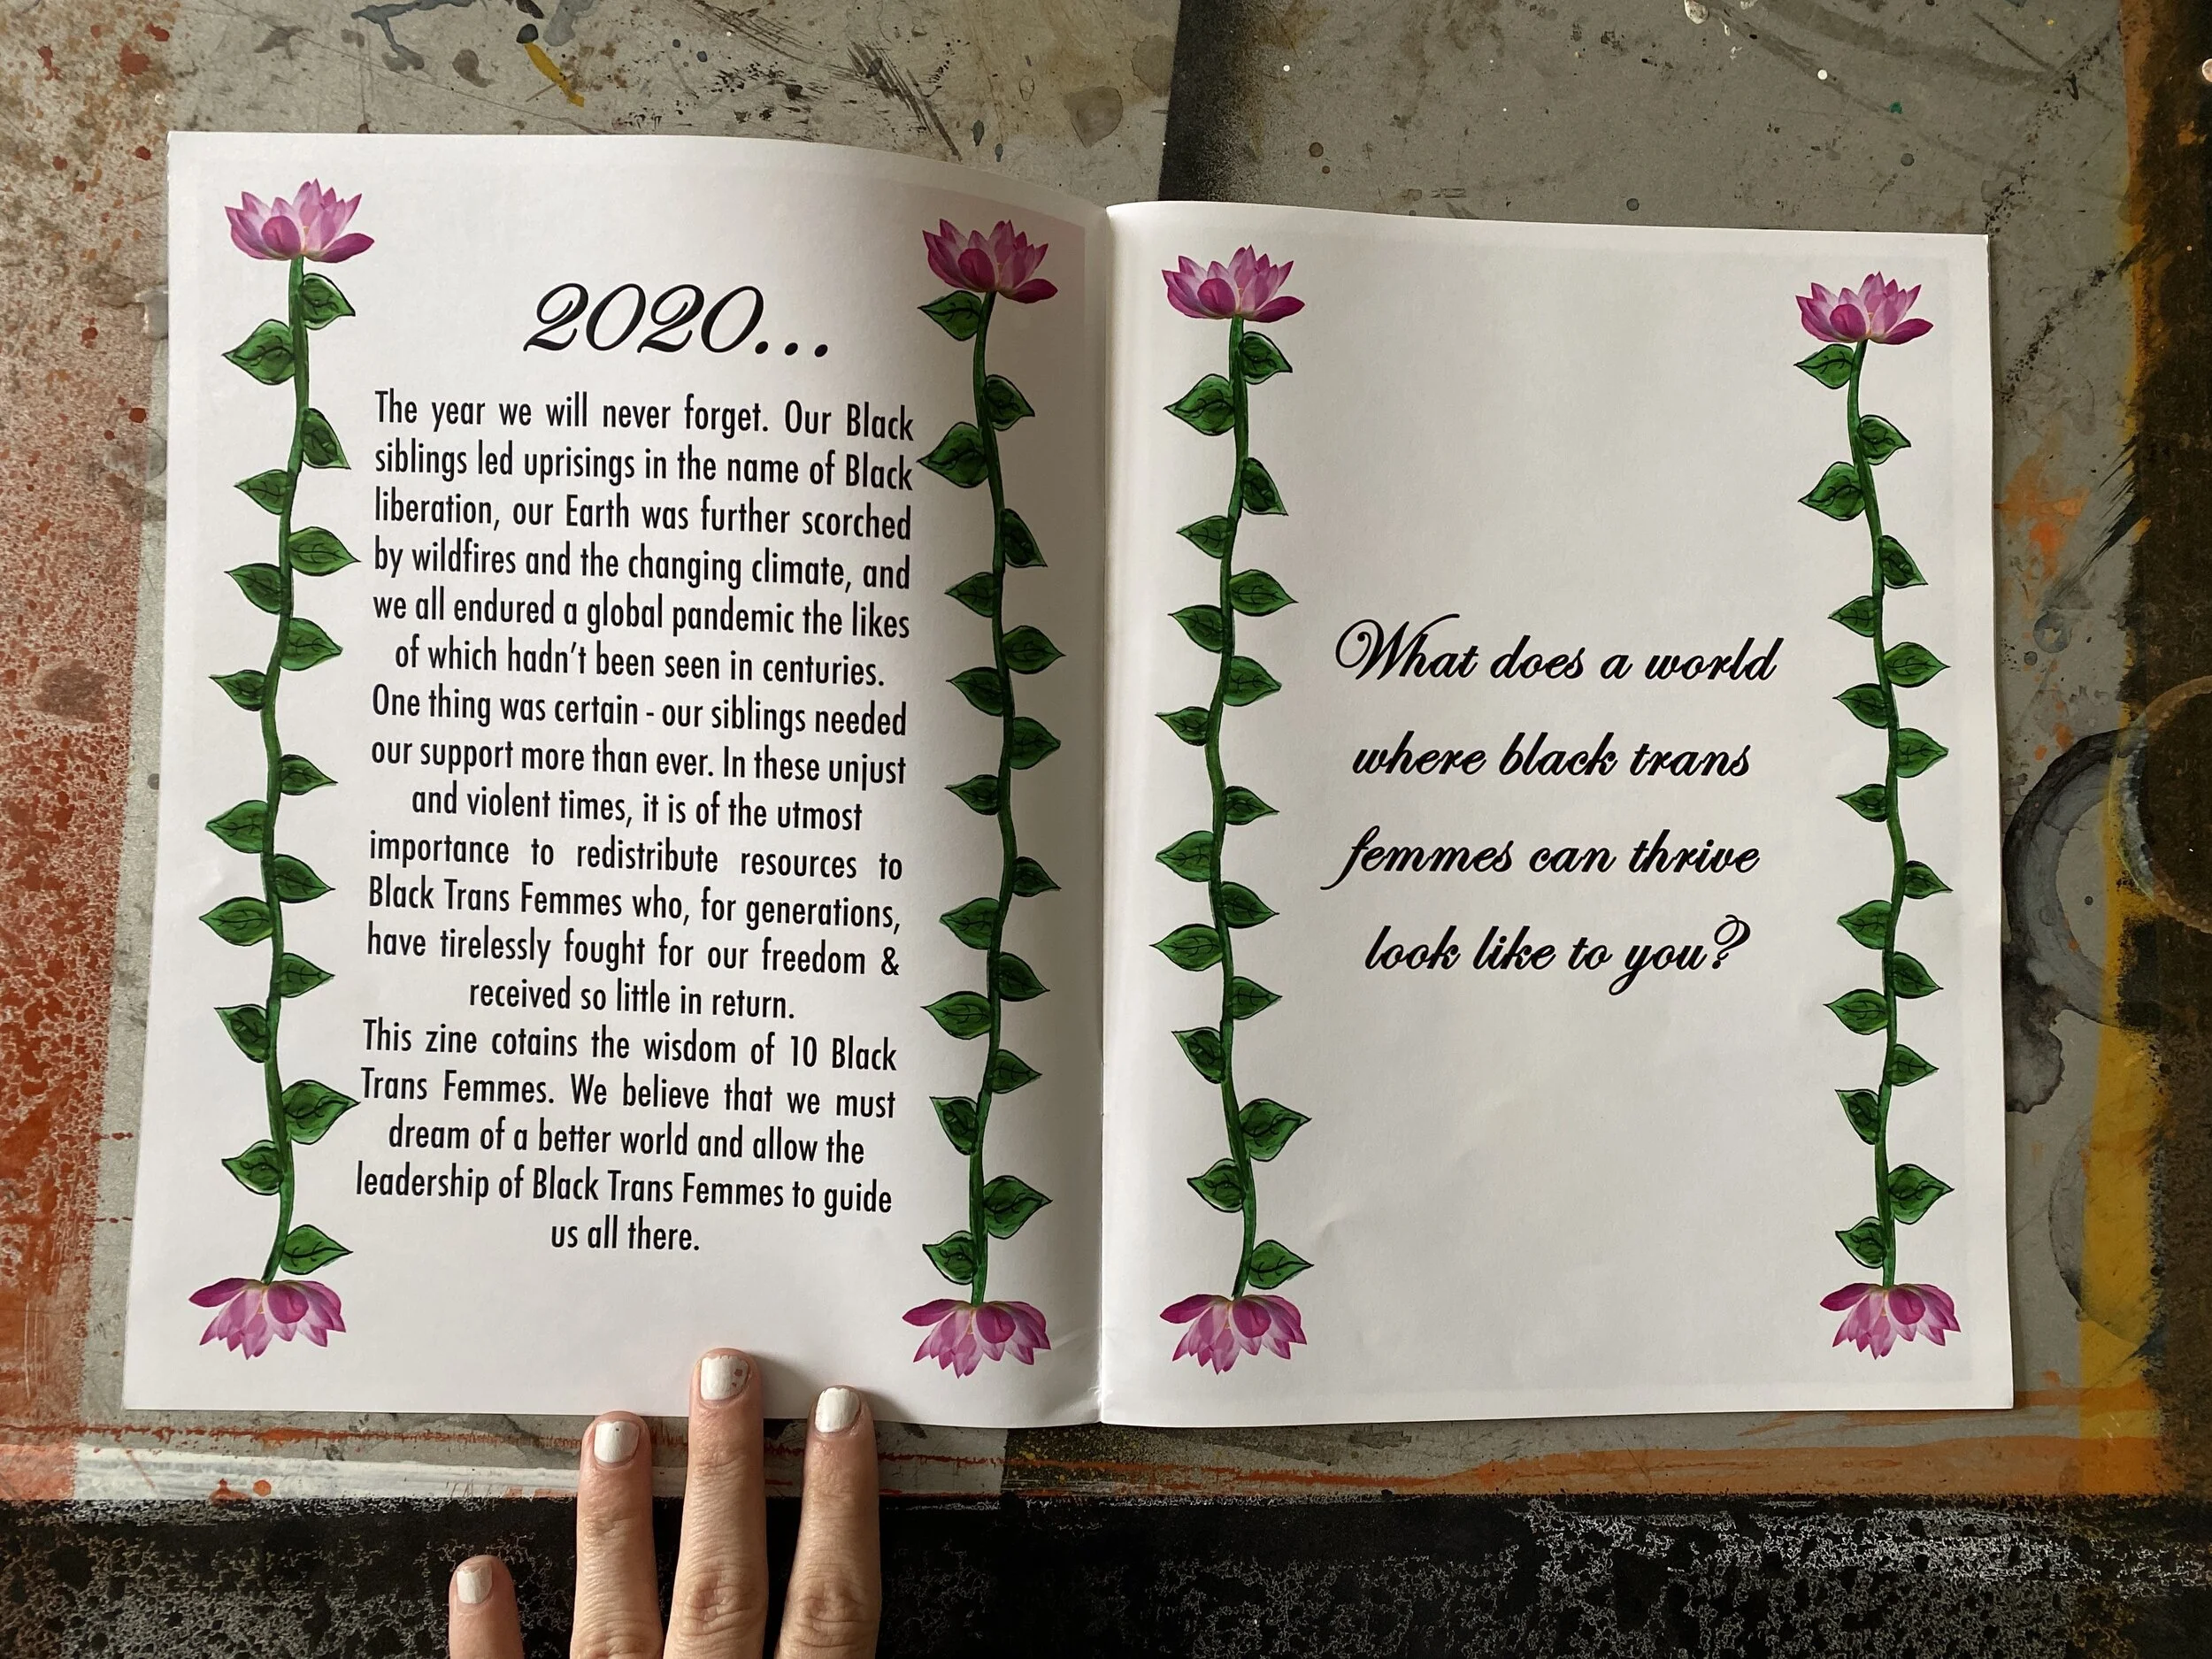 2020...
The year we will never forget. Our Black
siblings led uprisings in the name of Black
liberation, our Earth was further scorched
by wildfires and the changing climate, and
we all endured a global pandemic the likes
of which hadn't been seen in centuries.
One thing was certain - our siblings needed
our support more than ever. In these unjust
and violent times, it is of the utmost
importance to redistribute resources to
Black Trans Femmes who, for generations,
have tirelessly fought for our freedom &
received so little in return.
This zine cotains the wisdom of 10 Black
Trans Femmes. We believe that we must
dream of a better world and allow the
leadership of Black Trans Femmes to guide
us all there.
What does a world
where black trans
femmes can thrive
look like to you?